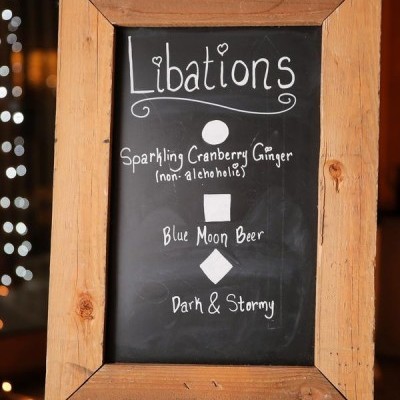 Libations
Sparkling Cranberry Ginger
(non-alchoholic)
Blue Moon Beer
Dark & Stormy